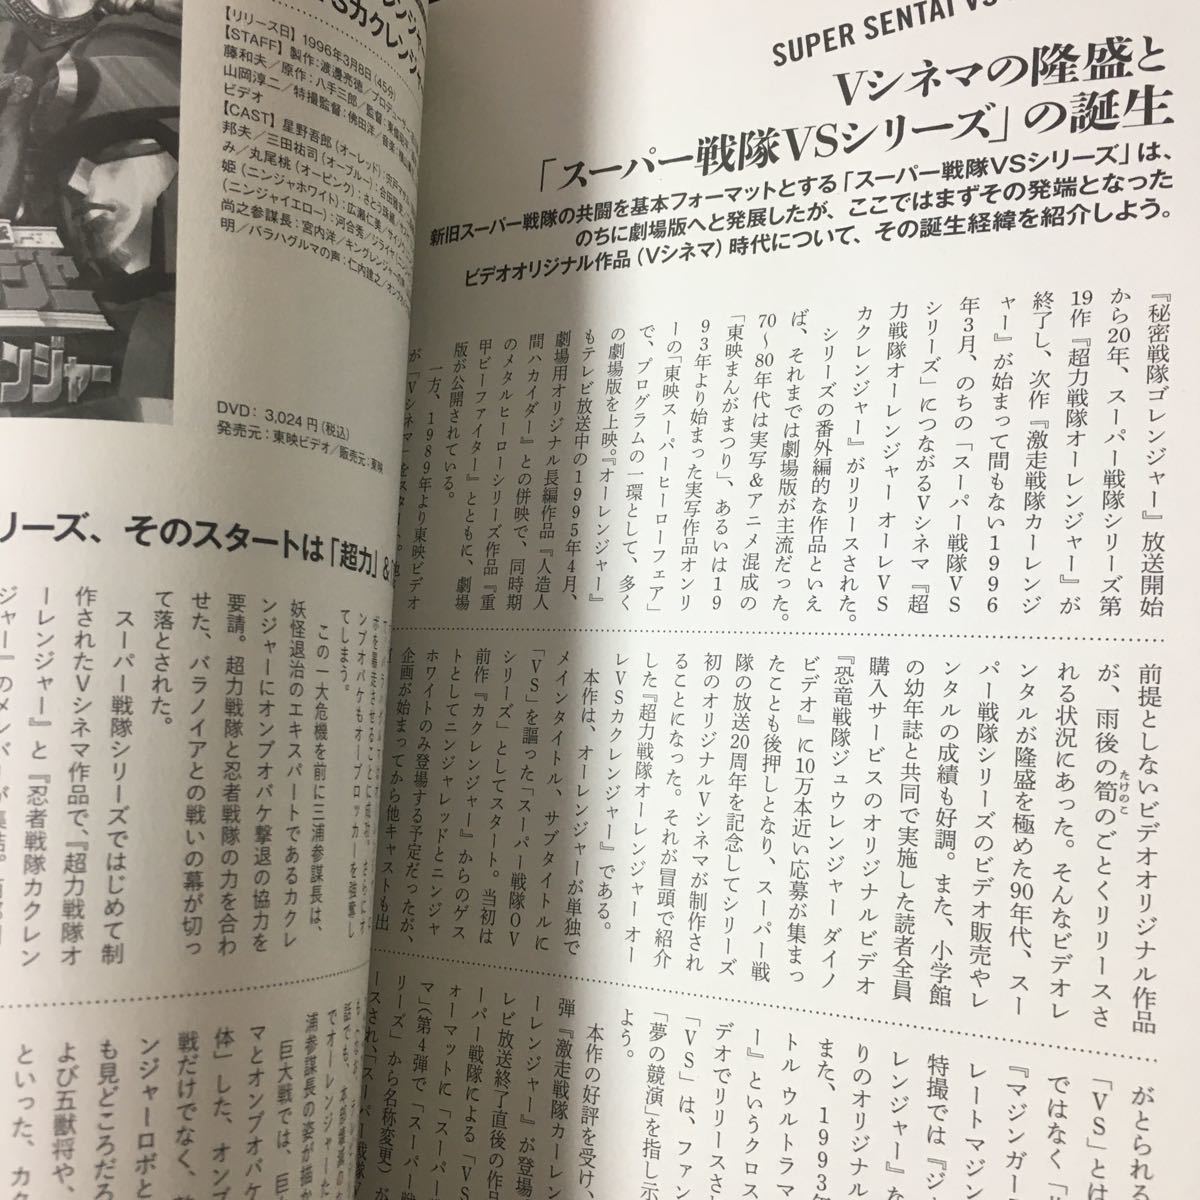 SUPER SENTAI VS
Vシネマの隆盛と
「スーパー戦隊VSシリーズ」の誕生
新旧スーパー戦隊の共闘を基本フォーマットとする「スーパー戦隊VSシリーズ」は、
のちに劇場版へと発展したが、ここではまずその発端となった
ビデオオリジナル作品（Vシネマ）時代について、その誕生経緯を紹介しよう。
『秘密戦隊ゴレンジャー』放送開始
から20年、スーパー戦隊シリーズ第
19作『超力戦隊オーレンジャー』が
終了し、次作『激走戦隊カーレンジ
ャー』が始まって間もない1996
年3月、のちの「スーパー戦隊VS
シリーズ」につながるVシネマ『超
力戦隊オーレンジャー オーレVS
カクレンジャー』がリリースされた。
シリーズの番外編的な作品といえ
ば、それまでは劇場版が主流だった。
70〜80年代は実写&アニメ混成の
「東映まんがまつり」、あるいは19
93年より始まった実写作品オンリ
ーの「東映スーパーヒーローフェア」
で、プログラムの一環として、多く
の劇場版を上映。『オーレンジャー』
もテレビ放送中の1995年4月、
劇場用オリジナル長編作品『人造人
間ハカイダー』との併映で、同時期
のメタルヒーローシリーズ作品『重
甲ビーファイター』とともに、劇場
版が公開されている。
一方、1989年より東映ビデオ
が「Vシネマ」をスタート。
前提としないビデオオリジナル作品
が、雨後の筍のごとくリリースさ
たけのこ
れる状況にあった。そんなビデオレ
ンタルが隆盛を極めた90年代、スー
パー戦隊シリーズのビデオ販売やレ
ンタルの成績も好調。また、小学館
の幼年誌と共同で実施した読者全員
購入サービスのオリジナルビデオ
『恐竜戦隊ジュウレンジャー ダイノ
ビデオ』に10万本近い応募が集まっ
たことも後押しとなり、スーパー戦
隊の放送20周年を記念してシリーズ
初のオリジナルVシネマが制作され
ることになった。それが冒頭で紹介
した『超力戦隊オーレンジャー オー
レVSカクレンジャー』である。
本作は、オーレンジャーが単独で
メインタイトル、サブタイトルに
「VS」を謳った「スーパー戦隊OV
シリーズ」としてスタート。当初は
前作『カクレンジャー』からのゲス
トとしてニンジャレッドとニンジャ
ホワイトのみ登場する予定だったが、
企画が始まってから他キャストも出
がとられる
「VS」とは
ではなく
『マジンガー
レートマジン
特撮では『ジ
レンジャー』な
りのオリジナル
また、1993年
トルウルトラマ
ー』というクロス
デオでリリースさ
「VS」は、ファン
「夢の競演」を指し示
よう。
本作の好評を受け、
弾『激走戦隊カーレン
ーレンジャー』が登場
レビ放送終了直後の作品
ーパー戦隊による「VS
ォーマットに「スーパー
マ」（第4弾で「スーパー戦
リーズ」から名称変更）
ースされ、「スーパー戦隊
【リリース日】1996年3月8日（45分）
【STAFF】製作：渡邊亮徳／プロデューサー
藤和夫／原作：八手三郎／監督：東條昭平
山岡淳二／特撮監督：佛田洋／音楽：横山
ビデオ
【CAST】星野吾郎（オーレッド）：宍戸
邦夫／三田祐司（オーブルー）：合田雅
み／丸尾桃（オーピンク）：さとう珠緒
姫（ニンジャホワイト）：広瀬仁美／サイゾウ
（ニンジャイエロー）：河合秀／ジライヤ（ニンジャ
尚之参謀長：宮内洋／キングレンジャーの
明／バラハグルマの声：仁内建之／オンブオバケ
DVD：3,024円（税込）
発売元：東映ビデオ／販売元：東映
リーズ、そのスタートは「超力」&
てしまう。
この一大危機を前に三浦参謀長は、
妖怪退治のエキスパートであるカクレ
ンジャーにオンブオバケ撃退の協力を
要請。超力戦隊と忍者戦隊の力を合わ
せた、バラノイアとの戦いの幕が切っ
て落とされた。
スーパー戦隊シリーズではじめて制
作されたVシネマ作品で、『超力戦隊オ
ーレンジャー』と『忍者戦隊カクレン
ジャー』のメンバーが集結。
浦参謀長の姿が描か
巨大戦では、巨
マとオンブオバケ
体」した、オンブ
戦だけでなく、
ンジャーロボと
も見どころだろ
よび五獣将や、
といった、カク